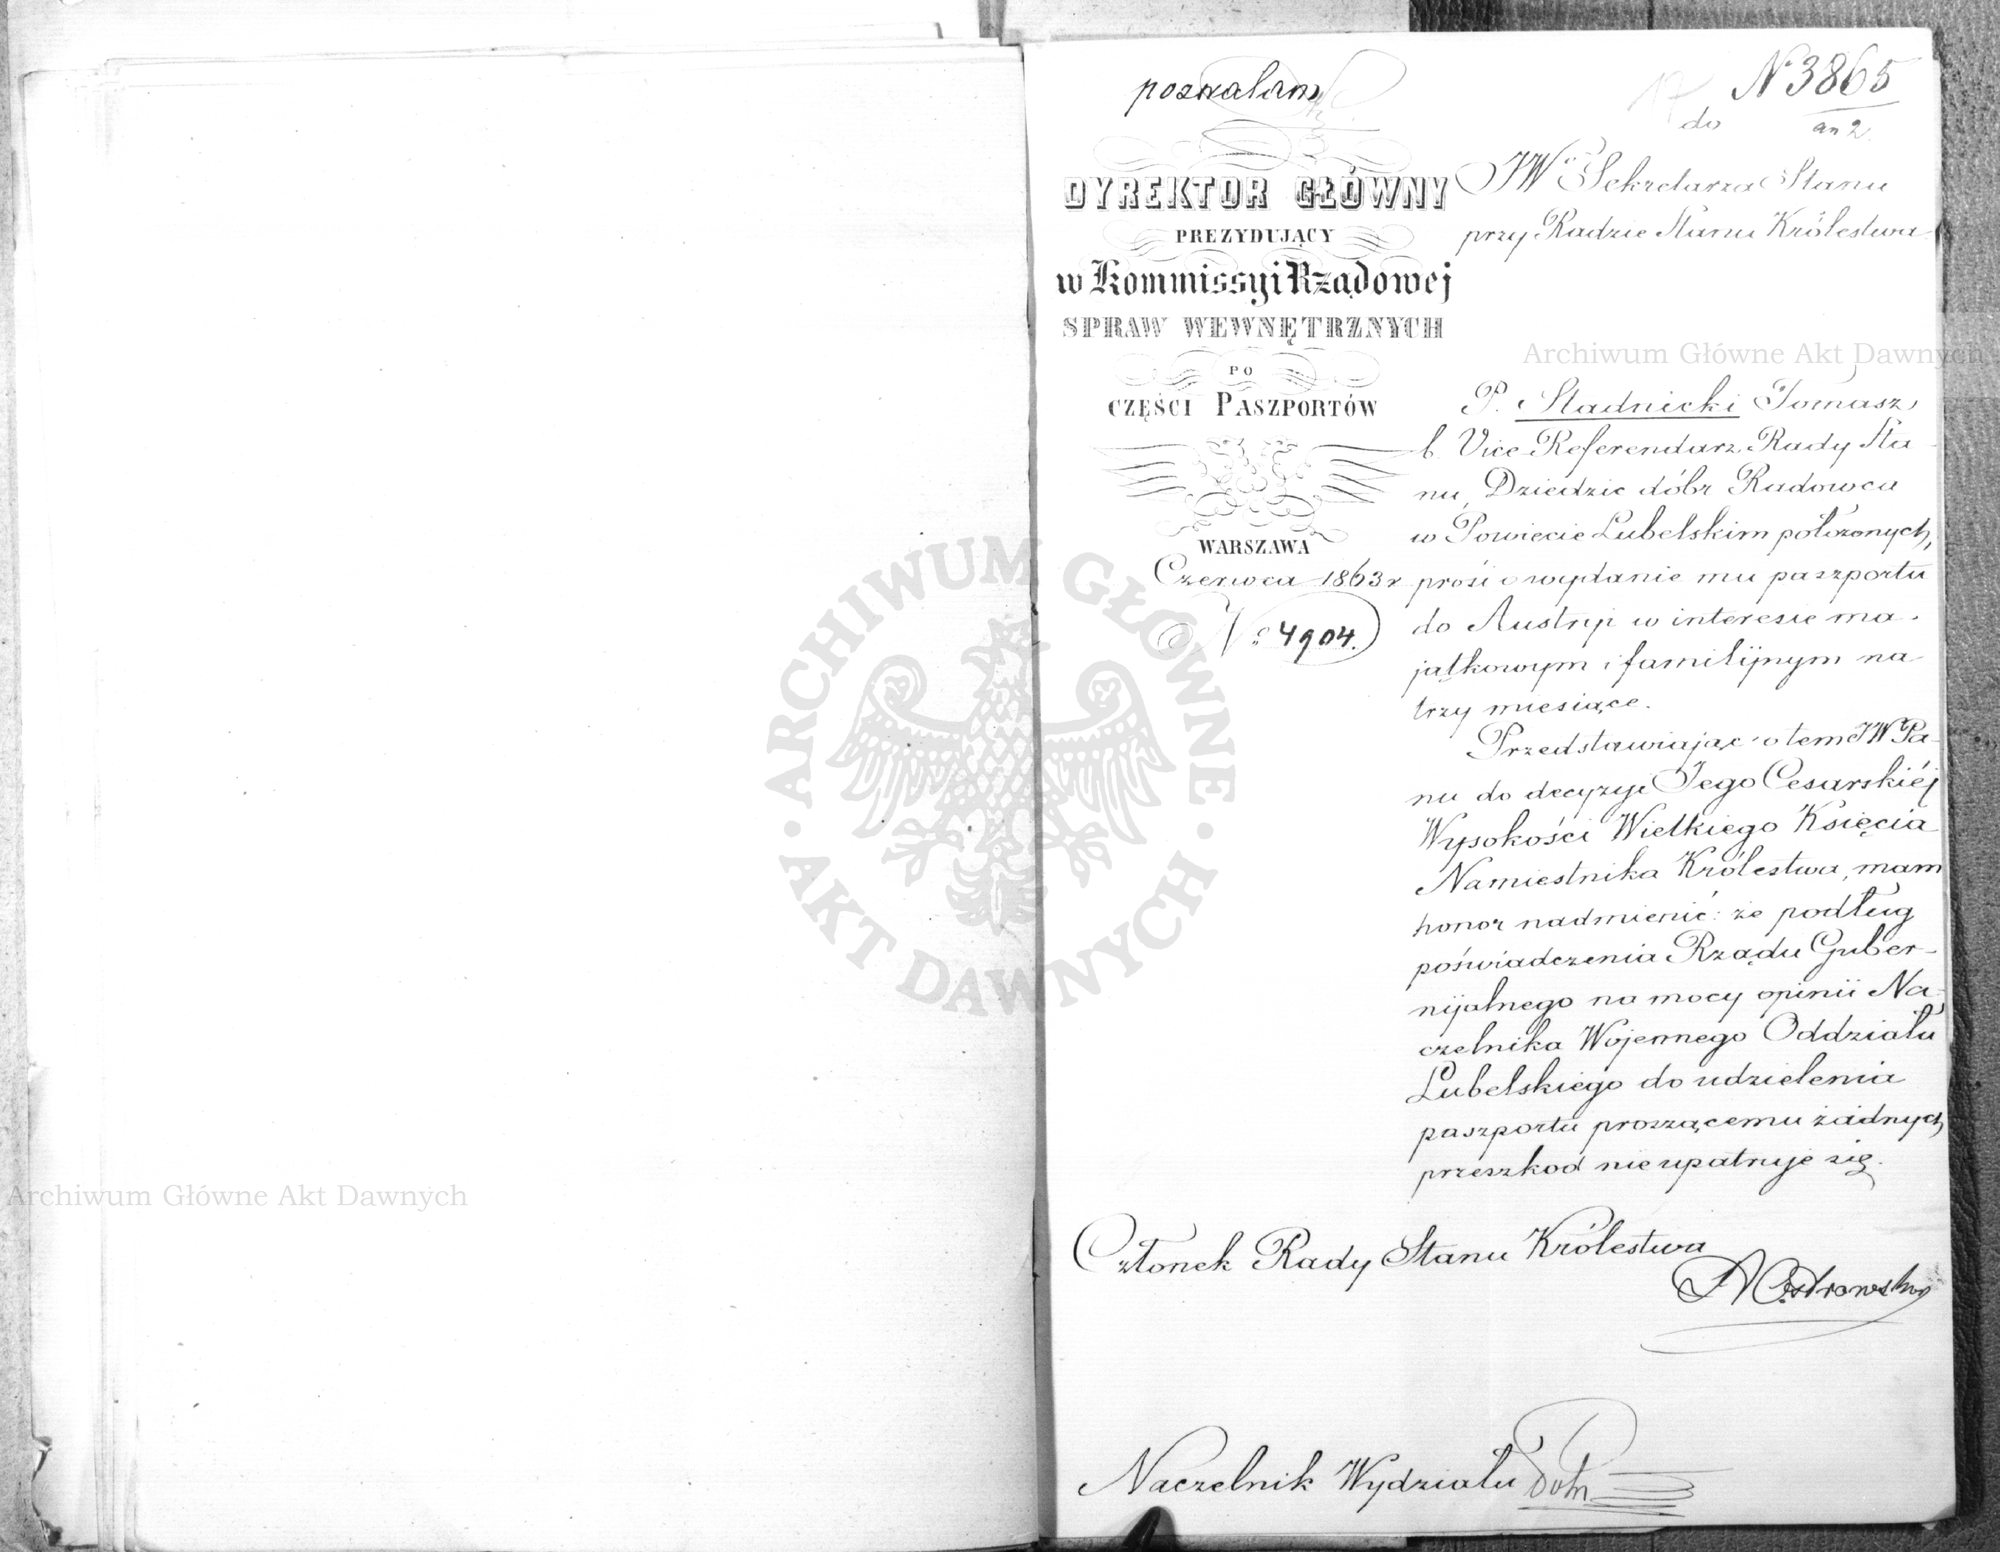 pozwalam
DYREKTOR GŁÓWNY
PREZYDUJĄCY
w Kommissyi Rządowej
SPRAW WEWNĘTRZNYCH
PO
CZĘŚCI PASZPORTÓW
WARSZAWA
Czerwca 1863 r
No 4904.
17
N 3865
an 2.
do
JWo Sekretarza Stanu
przy Radzie Stanu Królestwa
P. Stadnicki Tomasz
b. Vice-Referendarz Rady Sta-
nu, Dziedzic dóbr Radowca
w Powiecie Lubelskim położonych,
prosi o wydanie mu paszportu
do Austryi w interesie ma-
jątkowym i familijnym na
trzy miesiące.
Przedstawiając o tem JW Pa-
nu do decyzyi Jego Cesarskiéj
Wysokości Wielkiego Księcia
Namiestnika Królestwa, mam
honor nadmienić: że podług
poświadczenia Rządu Guber-
nijalnego na mocy opinii Na-
czelnika Wojennego Oddziału
Lubelskiego do udzielenia
paszportu proszącemu żadnych
przeszkod nie upatruje się.
Członek Rady Stanu Królestwa
Ostrowski
Naczelnik Wydziału
Archiwum Główne Akt Dawnych
Archiwum Główne Akt Dawnych
ARCHIWUM GŁÓWNE · AKT DAWNYCH ·